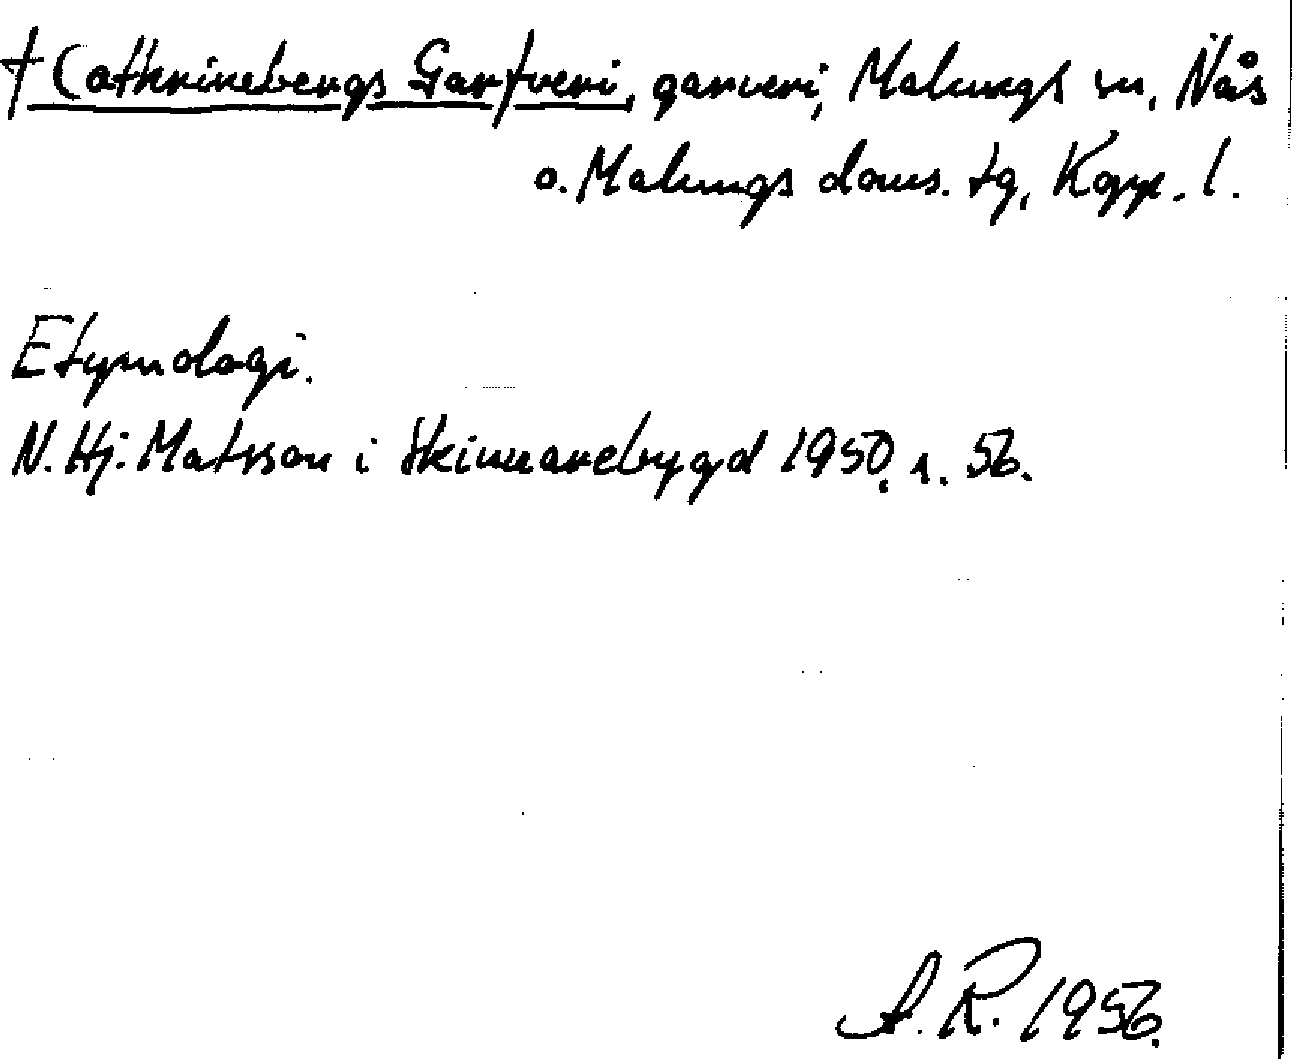 † Cathrinebergs Garfveri, garveri, Malungs sn, Nås
o. Malungs doms. tg, Kopp. l.
Etymologi.
N. Hj. Matsson i Skinnarebygd 1950, s. 56.
A. R. 1956.